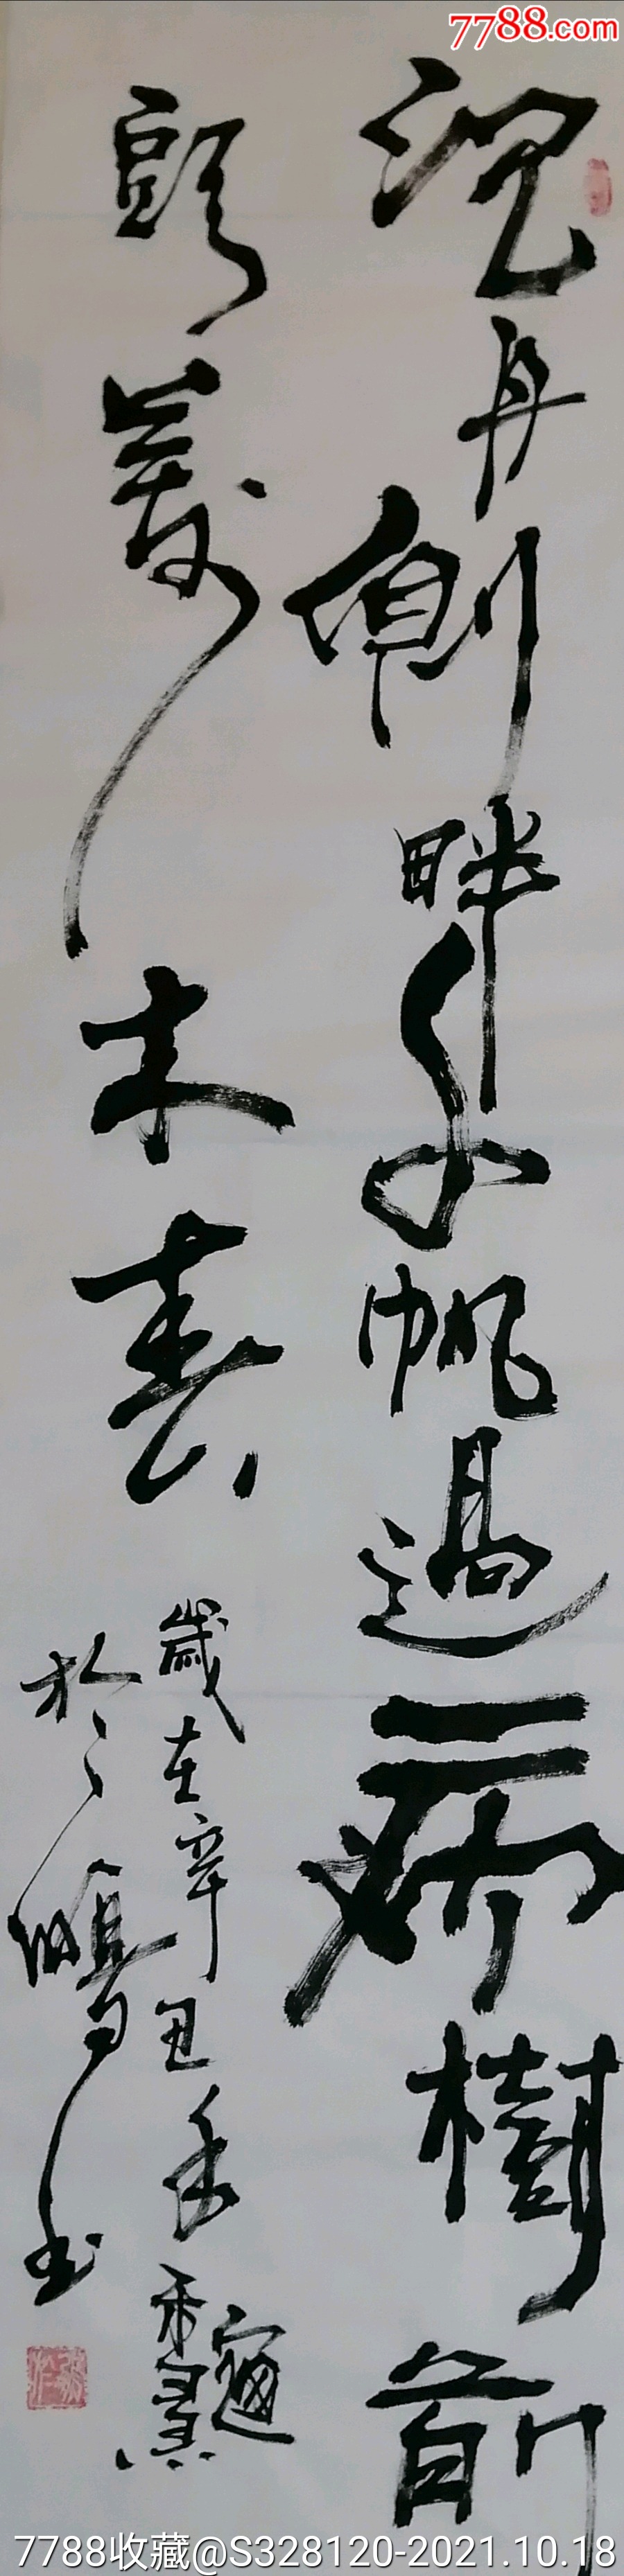 7788.com
沉舟側畔千帆過病樹前
頭萬木春
歲在辛丑年
於鵬書
7788收藏@S328120-2021.10.18